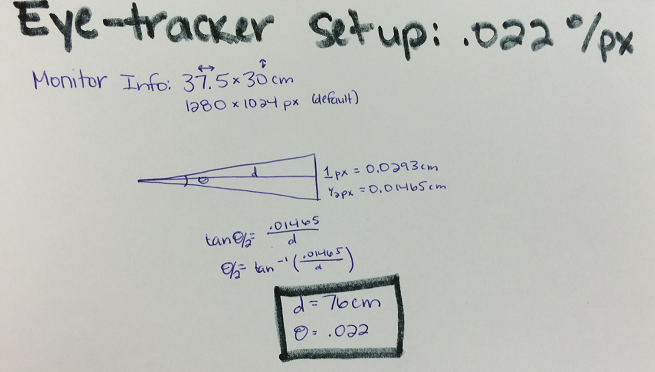 Eye-tracker setup: .022 °/px
Monitor Info: 37.5 x 30 cm
1280 x 1024 px (default)
d
θ
1 px = 0.0293 cm
1/2 px = 0.01465 cm
tan θ/2 = .01465/d
θ/2 = tan⁻¹(.01465/d)
d = 76 cm
θ = .022